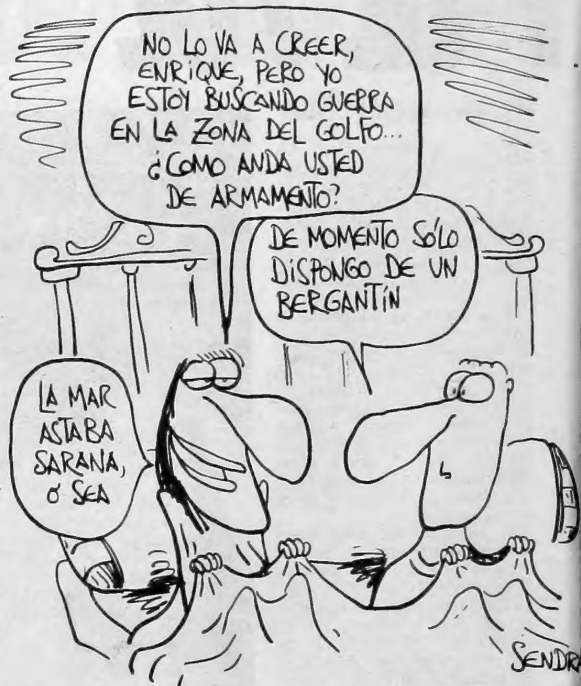 NO LO VA A CREER,
ENRIQUE, PERO YO
ESTOY BUSCANDO GUERRA
EN LA ZONA DEL GOLFO...
¿COMO ANDA USTED
DE ARMAMENTO?
DE MOMENTO SÓLO
DISPONGO DE UN
BERGANTÍN
LA MAR
ASTABA
SARANA,
Ó SEA
SENDRA